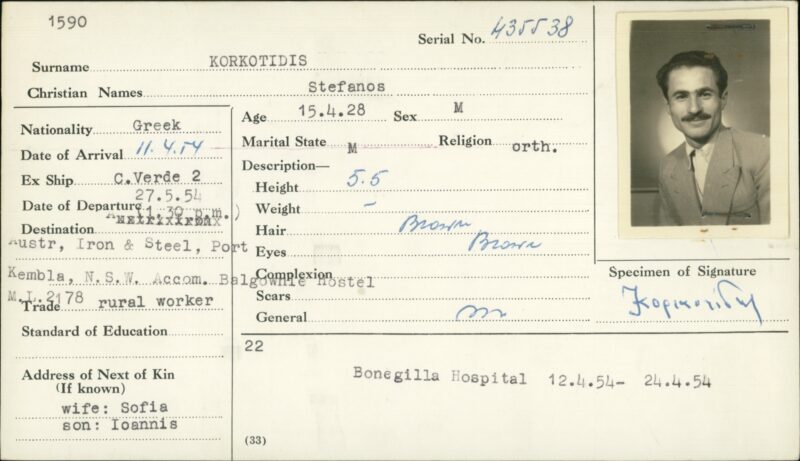 1590
Serial No. 435538
Surname KORKOTIDIS
Christian Names Stefanos
Nationality Greek
Date of Arrival 11.4.54
Ex Ship C.Verde 2
Date of Departure 27.5.54
11.30 p.m.)
Destination
Austr, Iron & Steel, Port
Kembla, N.S.W. Accom. Balgownie Hostel
M.L.2178
Trade rural worker
Standard of Education
Address of Next of Kin
(If known)
wife: Sofia
son: Ioannis
Age 15.4.28 Sex M
Marital State M Religion orth.
Description—
Height 5.5
Weight -
Hair Brown
Eyes Brown
Complexion
Scars
General
22
Bonegilla Hospital 12.4.54- 24.4.54
(33)
Specimen of Signature